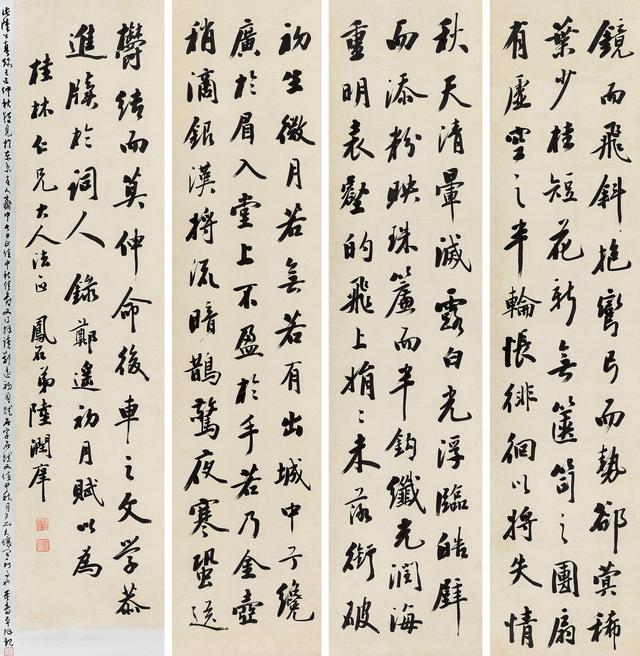 初生微月若無若有出城中纔
廣於眉入堂上不盈於手若乃金壺
稍滴銀漢將流暗鵲驚夜寒蛩送
秋天清暈滅露白光浮臨皓璧
而添粉映珠簾而半鉤纖光潤海
重明表壑的飛上娟〻未落銜破
鏡而飛斜抱彎弓而勢卻蓂稀
葉少桂短花新無篋笥之團扇
有虛空之半輪悵徘徊以將失情
鬱結而莫伸命後車之文學恭
進牘於詞人 錄鄭遙初月賦以為
桂林仁兄大人法正 鳳石弟陸潤庠